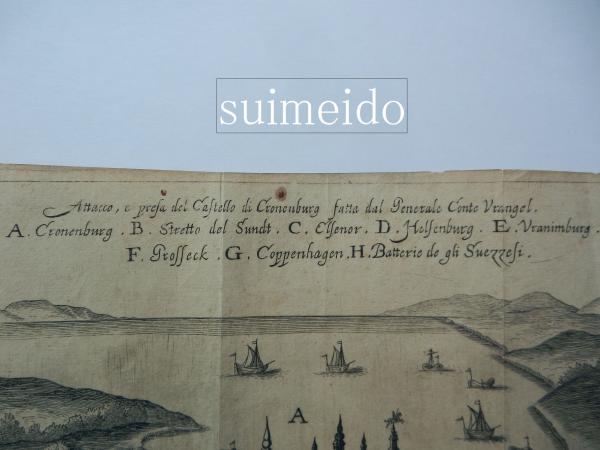 suimeido
Attacco, e presa del Castello di Cronenburg fatta dal Generale Conte Vrangel.
A. Cronenburg. B. Stretto del Sundt. C. Elsenor. D. Helsenburg. E. Vranimburg.
F. Grosseck. G. Coppenhagen. H. Batterie de gli Suezzesi.
A